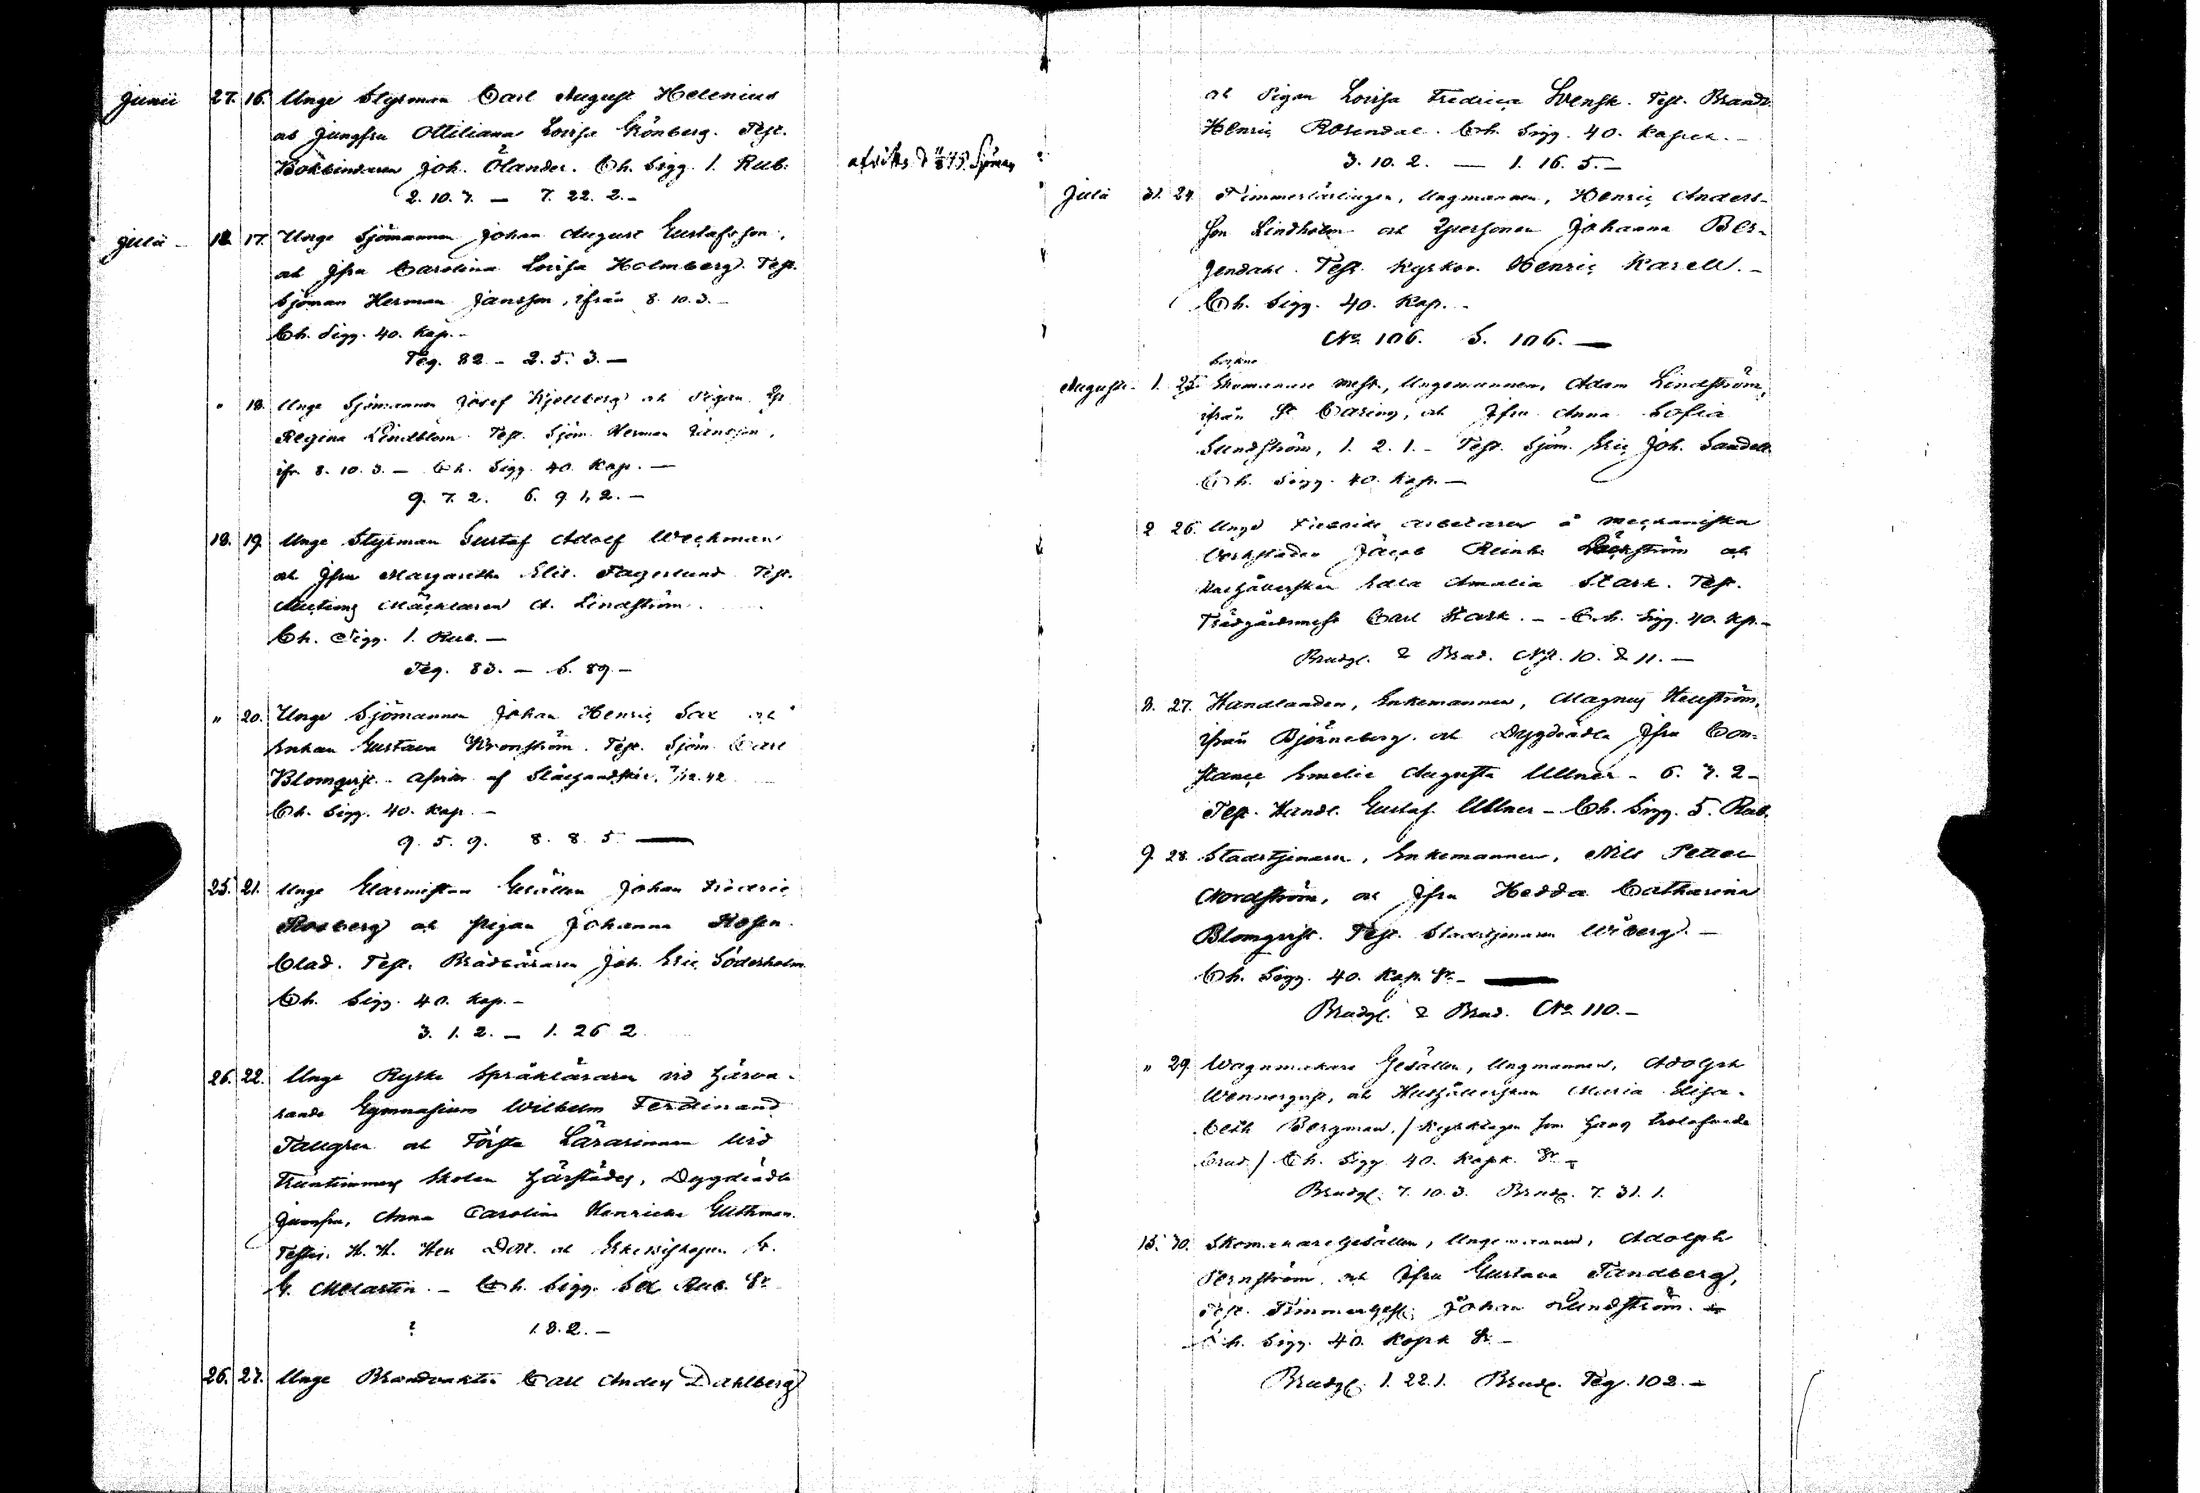 Junii 27. 16. Unge Styrman Carl August Helenius
och Jungfru Ottiliana Lovisa Grönberg. Test.
Bokbindaren Joh. Ölander. Ch. Sigg. 1. Rub.
2. 10. 7. — 7. 22. 2. –
Julii – 18. 17. Unge Sjömannen Johan August Gustafsson,
och Jfru Carolina Lovisa Holmberg. Test.
Sjöman Herman Jansson, ifrån 8. 10. 3. –
Ch. Sigg. 40. Kop. –
Teg. 82 – 2. 5. 3. —
" 18. Unge Sjömannen Josef Kjellberg och Pigan
Regina Lindblom. Test. Sjöm. Herman Jansson,
ifr. 8. 10. 3. – Ch. Sigg. 40. Kop. —
9. 7. 2. 6. 9. 1, 2. —
18. 19. Unge Styrman Gustaf Adolf Weckman
och Jfru Margaretha Elis. Fagerlund. Test.
Auctions Mäcklaren A. Lindström.
Ch. Sigg. 1. Rub. —
Teg. 83. — S. 89. –
" 20. Unge Sjömannen Johan Henric Sax och
Enkan Gustava Kronström. Test. Sjöm. Carl
Blomqvist. – af
Ch. Sigg. 40. Kop. –
9. 5. 9. 8. 8. 5. —
25. 21. Unge Gesällen Johan Fredric
Rosberg och pigan Johanna Rosen-
blad. Test. Brädbäraren Joh. Eric Söderholm
Ch. Sigg. 40. Kop. –
3. 1. 2. — 1. 26 2.
26. 22. Unge Ryske Språkläraren vid härva-
rande Gymnasium Wilhelm Ferdinand
och Första Lärarinnan vid
Fruntimmers Skolan härstädes, Dygdädla
Jumfru, Anna Carolina Henrica Guthman.
Testis. H. H. Herr Doct. och Erkebiskopen E.
G. Melartin. – Ch. Sigg. Sex Rub. Sr.
? 1. 8. 2. –
26. 23. Unge Brandvakten Carl Anders Dahlberg
Sjöman
och Pigan Lovisa Fredrica Svensk. Test. Brandv.
Henric Rosendal. Ch. Sigg. 40. Kopek. –
3. 10. 2. — 1. 16. 5. –
Julii 31. 24. Timmerlärlingen, Ungmannen, Henric Anders-
son Lindholm och Qpersonen Johanna Ber-
gendahl. Test. Kyrkov. Henric Karell. –
Ch. Sigg. 40. Kop. –
No 106. S. 106. —
Augusti – 1. 25. Skomakare mest., Ungemannen, Adam Lindström,
ifrån St Carins, och Jfru Anna Sofia
Sundström, 1. 2. 1. – Test. Sjöm. Eric Joh. Sandell.
Ch. Sigg. 40. Kop. —
2 26. Unge arbetaren å mechaniska
Verkstaden Jacob Reinh. och
Hushållerskan Edla Amalia Stark. Test.
Trädgårdsmest. Carl Stark. – Ch. Sigg. 40. Kp. –
Brudg. & Brud. 10. & 11. —
8. 27. Handlanden, Enkemannen, Magnus
ifrån Björneborg och Dygdädla Jfru Con-
stance Emelie Augusta Ullner – 6. 7. 2 –
Test. Handl. Gustaf Ullner – Ch. Sigg. 5. Rub.
9. 28. Stadstjenaren, Enkemannen, Nils Petter
Nordström, och Jfru Hedda Catharina
Blomqvist. Test. Stadstjenaren Wiberg. –
Ch. Sigg. 40. Kop. Sr. – —
Brudg. & Brud. No 110. –
" 29. Wagnmakare Gesällen, Ungmannen, Adolph
Wennerqvist, och Hushållerskan Maria Elisa-
beth Bergman, / Kyrktagen som hans trolofvade
brud / Ch. Sigg. 40. Kopk. Sr. –
Brudg. 7. 10. 3. Brud. 7. 31. 1.
15. 30. Skomakaregesällen, Ungemannen, Adolph
Fernström, och Jfru Gustava Tandberg,
Test. Timmergesl. Johan Lundström.
Ch. Sigg. 40. Kopk Sr –
Brudg. 1. 22. 1. Brud. Teg. 102. –